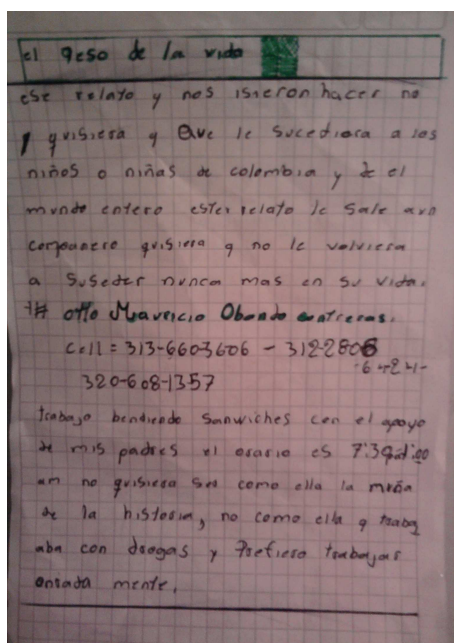 el Qeso de la vida
ese relato y nos isieron hacer no
quisiera q Que le Sucediera a los
niños o niñas de colombia y de el
mundo entero ester relato le Sale aun
compañero quisiera q no le volviera
a Suseder nunca mas en su vida.
otto Mauricio Obando contreras.
Cell = 313-660-3606 - 312-2806
320-608-1357
trabajo bendiendo Sanwiches con el apoyo
de mis padres el orario es
am no quisiera Ser como ella la
de la historia, no como ella q trabaj
aba con drogas y Prefiero trabajar
onrada mente,